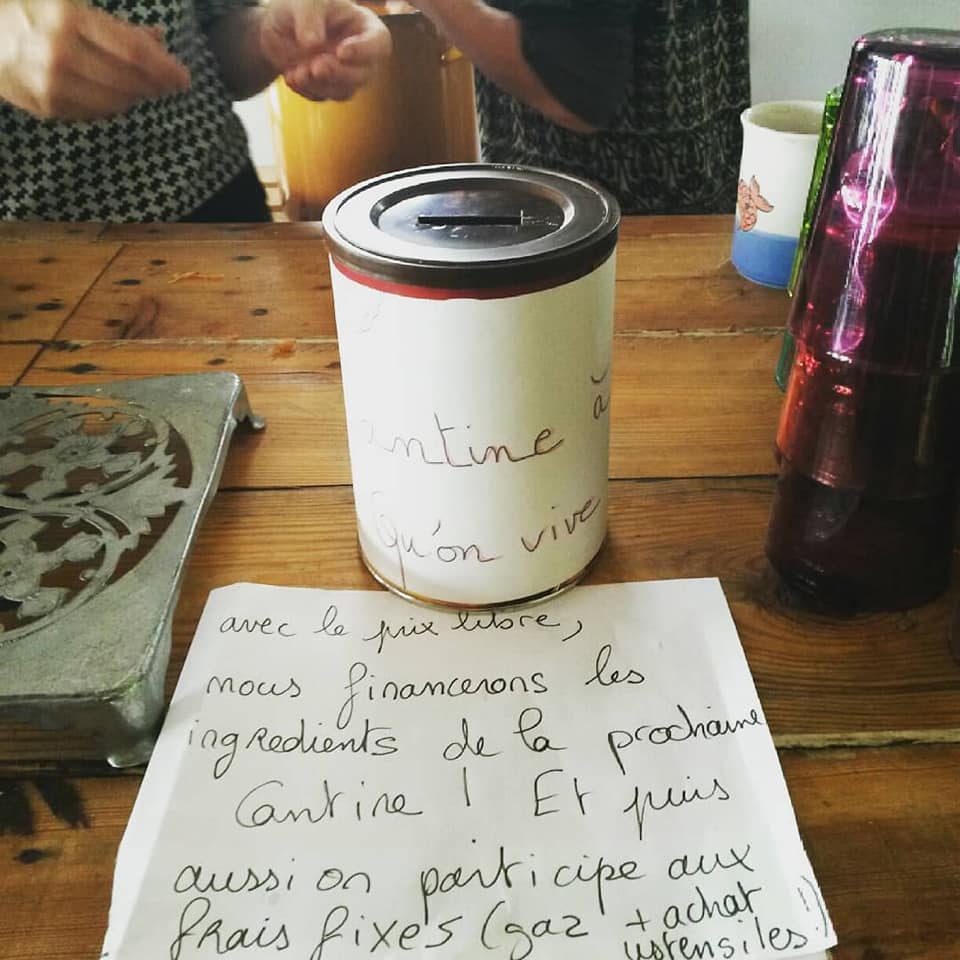 antine à
Qu'on vive
avec le prix libre,
nous financerons les
ingredients de la prochaine
Cantine ! Et puis
aussi on participe aux
frais fixes (gaz + achat
ustensiles !)